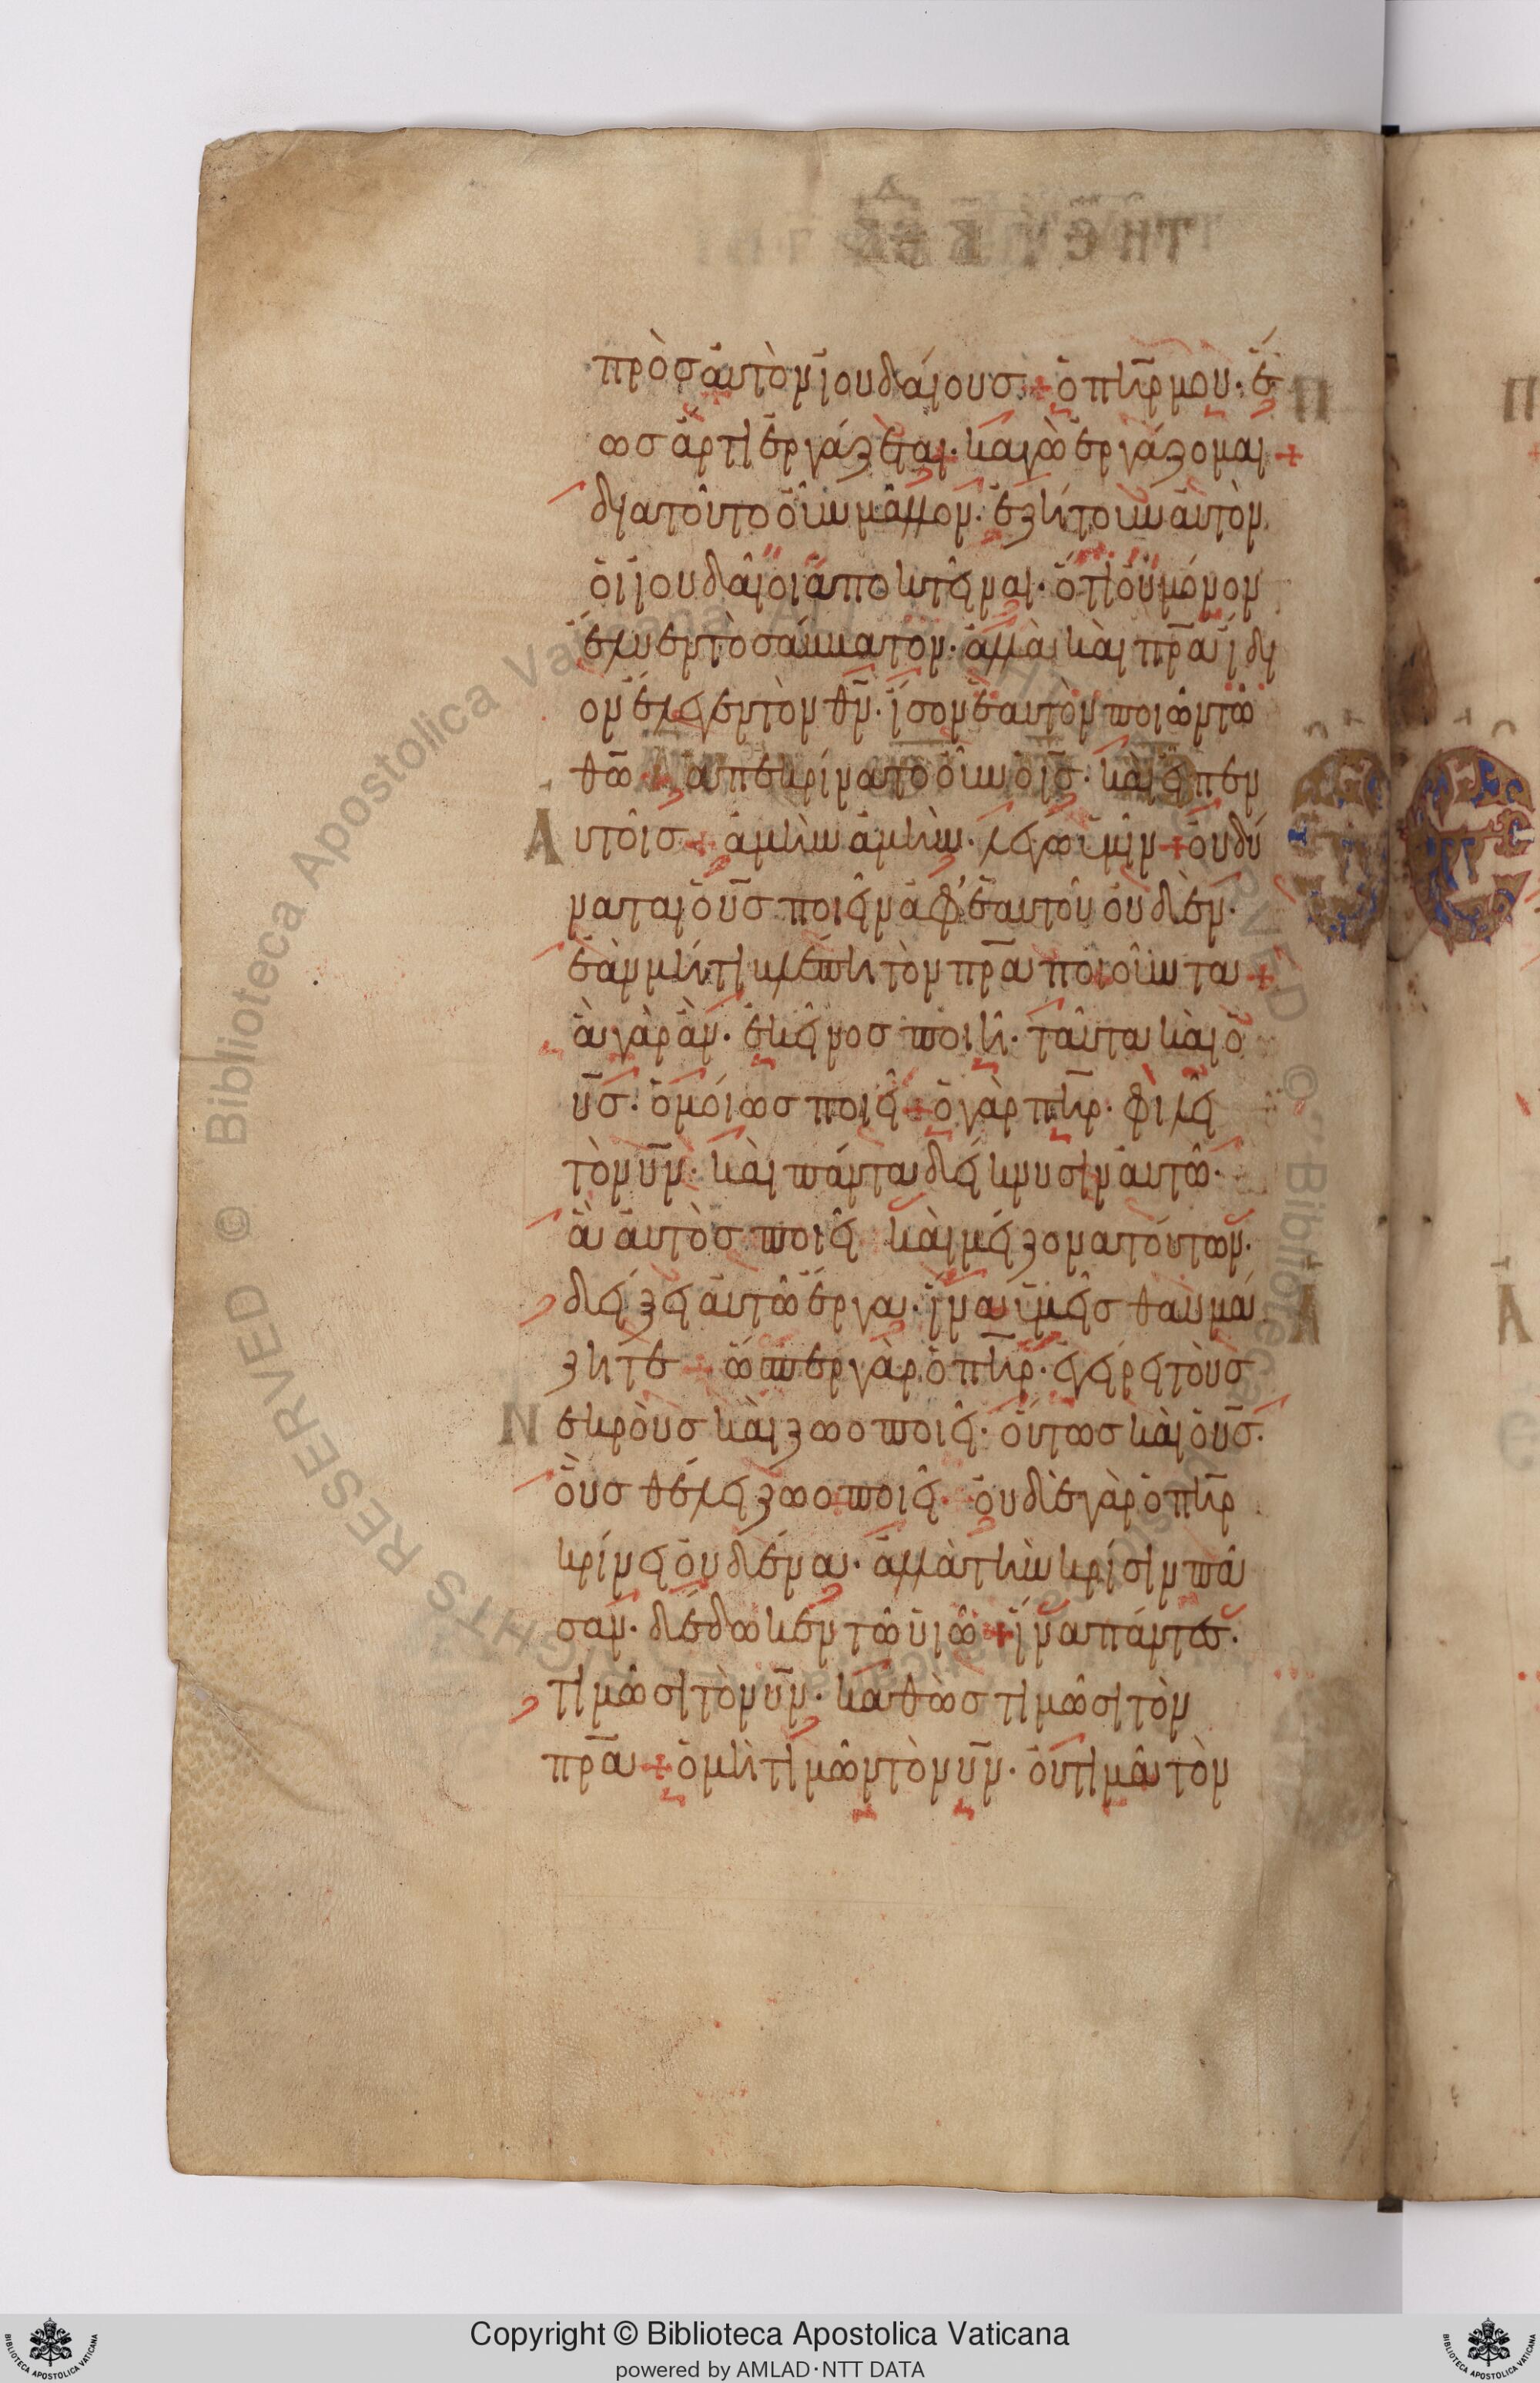 πρὸσ ἀυτὸν ἰουδάιουσ + ὁ π̅η̅ρ̅ μου · ἕ
ωσ ἄρτι ἐργάζεται · κἀγὼ ἐργάζομαι +
διατοῦτο οὖν μᾶλλον · ἐζήτουν ἀυτὸν
ὁι ἰουδᾶιοι ἀποκτεῖναι · ὅτι ὀυ μόνον
ἔλυεν τὸ σάββατον · ἀλλὰ κὰι π̅ρ̅α̅ ἴδι
ον ἔλεγεν τὸν θ̅ν̅ · ἴσον ἑαυτὸν ποιῶν τῶ
θ̅ω̅ + ἀπεκρίνατο οὖν ὁ ι̅σ̅ · κὰι εἶπεν
Αυτοῖσ + ἀμὴν ἀμὴν · λέγω ὑμῖν + ὀυ δύ
ναται ὁ υ̅σ̅ ποιεῖν ἀφ' ἑαυτοῦ ὀυδὲν ·
ἐὰν μήτι βλέπη τὸν π̅ρ̅α̅ ποιοῦντα +
ἃ γὰρ ἂν · ἐκεῖνοσ ποιῆ · ταῦτα κὰι ὁ
υ̅σ̅ · ὁμόιωσ ποιεῖ + ὁ γὰρ π̅η̅ρ̅ · φιλεῖ
τὸν υ̅ν̅ · κὰι πάντα δείκνυσιν ἀυτῶ ·
ἃ ἀυτὸσ ποιεῖ κὰι μείζονα τούτων ·
δείξει ἀυτῶ ἔργα · ἵνα ὑμεῖσ θαυμά
ζητε + ὥσπερ γὰρ ὁ π̅η̅ρ̅ · ἐγείρει τοὺσ
Νεκροὺσ κὰι ζωοποιεῖ · οὕτωσ κὰι ὁ υ̅σ̅ ·
οὓσ θέλει ζωοποιεῖ · ὀυδὲ γὰρ ὁ π̅η̅ρ̅
κρίνει ὀυδένα · ἀλλὰ τὴν κρίσιν πᾶ
σαν · δέδωκεν τῶ ὑιῶ + ἵνα πάντεσ ·
τιμῶσι τὸν υ̅ν̅ · καθὼσ τιμῶσι τὸν
π̅ρ̅α̅ + ὁ μὴ τιμῶν τὸν υ̅ν̅ · ὀυ τιμᾶ τὸν
Copyright © Biblioteca Apostolica Vaticana
powered by AMLAD·NTT DATA